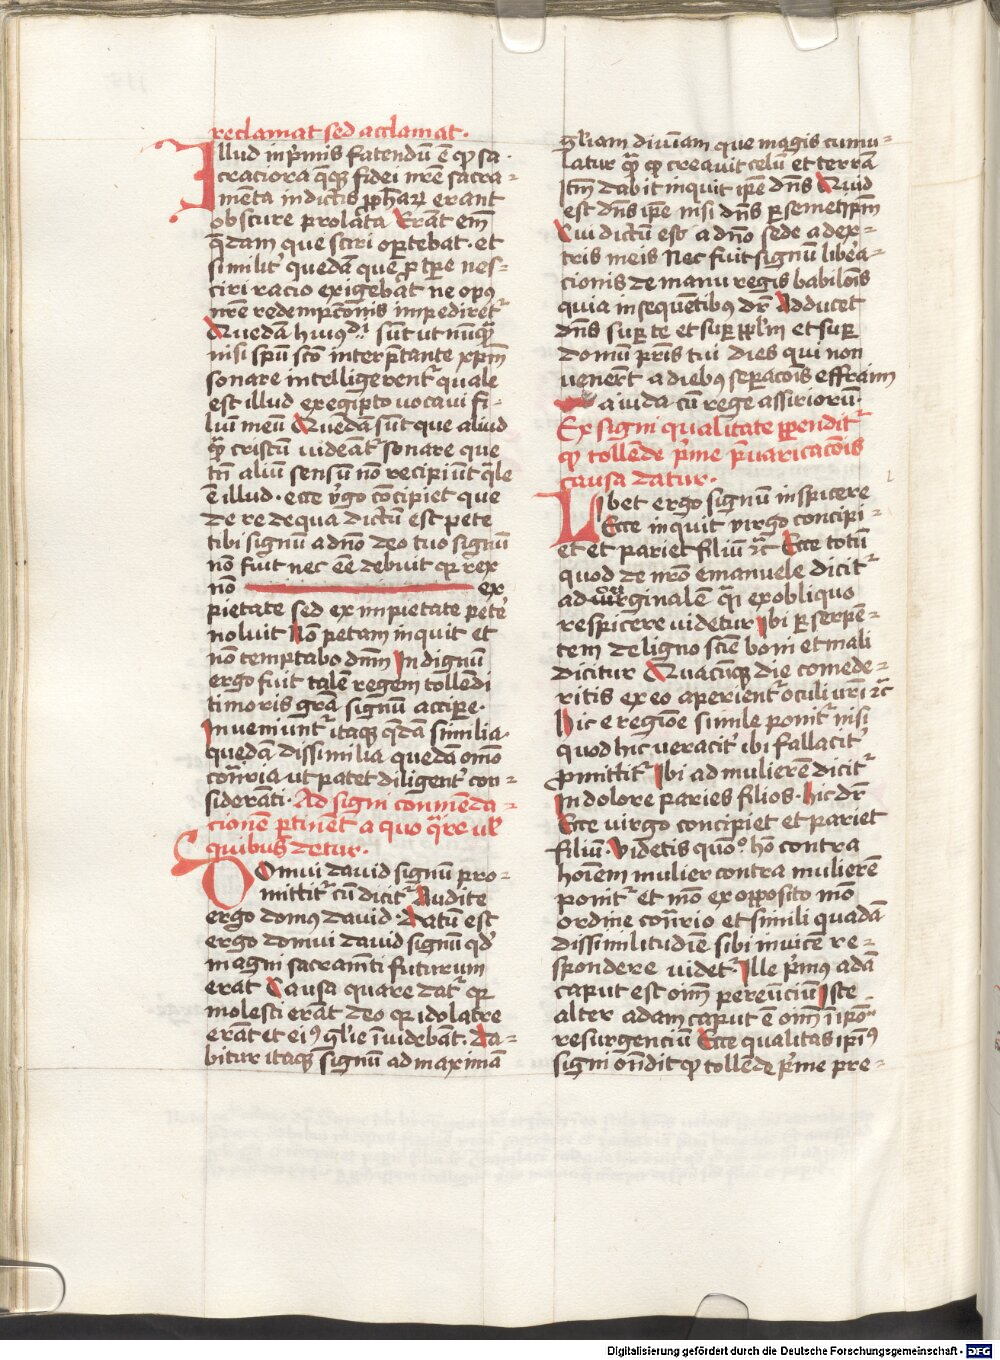 reclamat sed acclamat.
Illud inp̄mis fatendū ē qp sa-
cratiora q̄q̨ fidei nr̄e sacra-
menta in dictis ꝓphaꝝ erant
obscure prolata Erāt em̄
q̄dam que sciri oꝑtebat. et
similit̾ quedā que ꝓ tp̄e nes-
ciri racio exigebat ne opꝰ
nr̄e redempt̄cōnis impediret᷑
Quedā huiꝰdi sūt ut nūq̄
nisi spū scō interp̄tante xp̄m
sonare intelligerent᷑ quale
est illud ex egipto uocaui fi-
liū meū Quedā sūt que aliud
q̄ cristū uideāt᷑ sonare que
tn̄ aliū sensū nō recipiūt q̄le
ē illud. ecce ṽgo cōcipiet que
de re de qua dictū est pete
tibi signū a dn̄o deo tuo signū
nō fuit nec eē debuit qꝛ rex
nō ex
pietate sed ex impietate petē
noluit Nō petam inquit et
nō temptabo dn̄m Indignū
ergo fuit talē regem tollendi
timoris grā signū accipe.
Inueniunt᷑ itaq̨ q̄dā similia.
quedā dissimilia quedā om̄o
cōn̄ria ut patet diligent̾ con-
siderāti. Ad signi commēda-
cionē ꝑtinēt a quo q̄re ul̾
quibus detur.
Domui dauid signū pro-
mittit᷑ cū dicit᷑ Audite
ergo domꝰ dauid. Datū est
ergo domui dauid signū qd̾
magni sacram̄ti futurum
erat Causa quare dat᷑ qꝛ
molesti erāt deo qꝛ idolatre
erāt et eiꝰ gl̄ie īuidebāt. Da-
bitur itaq̨ signū ad maximā
gl̄iam diuīam que magis cumu-
latur q̄ qp creauit celū et terrā
Itm̄ dabit inquit ip̄e dn̄s Quid
est dn̄s ip̄e nisi dn̄s ꝑ semetip̄m
Cui dictū est a dn̄o sede a dex-
tris meis Nec fuit signū libera-
cionis de manu regis babilōis
quia in sequētibꝰ dr̄ Adducet
dn̄s suꝑ te et suꝑ ppl̄m et suꝑ
domū pr̄is tui dies qui non
venerūt a diebꝰ seꝑacōis effraim
a iuda cū rege assiriorū.
Ex signi qualitate ꝑpendit᷑
qp tollēde p̄me p̄uaricacōis
causa datur.
Libet ergo signū inspicere
Ecce inquit virgo concipi-
et et pariet filiū ⁊c̄ Ecce totū
quod de nr̄o emanuele dicit᷑
ad virginalē q̄i ex obliquo
respicere uidetur Ibi ꝑ serpē-
tem de ligno sciē boni et mali
dicitur Quacūq̨ die comede-
ritis ex eo aperient᷑ oculi ur̄i ⁊c̄
hic e regiōe simile ponit᷑ nisi
quod hic veracit̾ ibi fallacit̾
ꝓmittit᷑ Ibi ad mulierē dicit᷑
In dolore paries filios. hic dr̄
Ecce virgo concipiet et pariet
filiū. Videtis quō hō contra
hoīem mulier contra mulierē
ponit᷑ et mō ex opposito mō
ordine cōn̄rio et simili quadā
dissimilitudīe sibi inuicē re-
spondere uidet᷑. Ille p̄mꝰ adā
caput est om̄ pereūciū Iste
alter adam caput ē om̄ ī ip̄o
resurgenciū Ecce qualitas ip̄iꝰ
signi on̄dit qp tollēde p̄me pre-
Digitalisierung gefördert durch die Deutsche Forschungsgemeinschaft - DFG